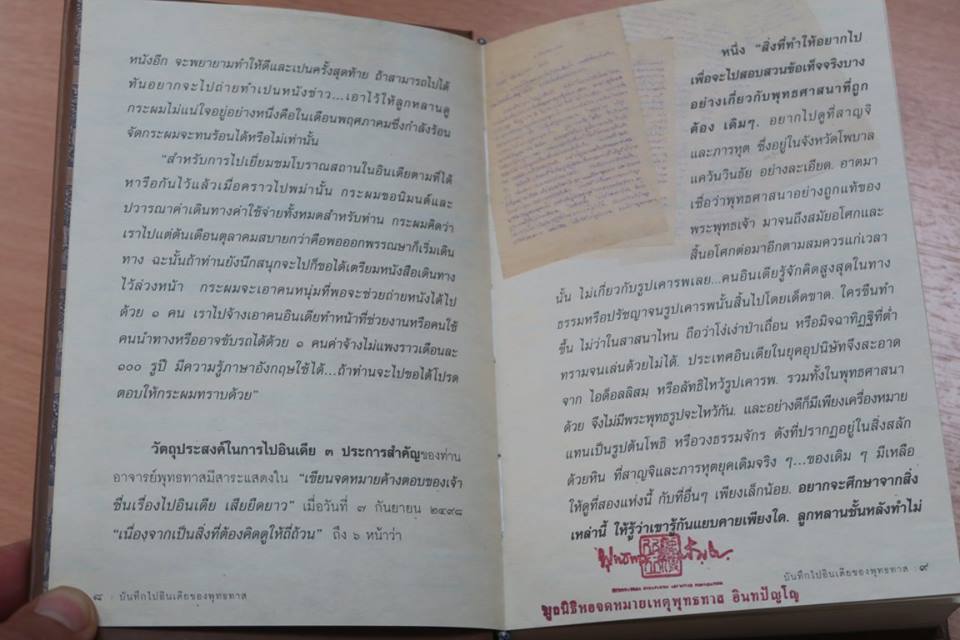 หนังอีก จะพยายามทำให้ดีและเปนครั้งสุดท้าย ถ้าสามารถไปได้
ทันอยากจะไปถ่ายทำเปนหนังข่าว...เอาไว้ให้ลูกหลานดู
กระผมไม่แน่ใจอยู่อย่างหนึ่งคือในเดือนพฤศภาคมซึ่งกำลังร้อน
จัดกระผมจะทนร้อนได้หรือไม่เท่านั้น
“สำหรับการไปเยี่ยมชมโบราณสถานในอินเดียตามที่ได้
หารือกันไว้แล้วเมื่อคราวไปพม่านั้น กระผมขอนิมนต์และ
ปวารณาค่าเดินทางค่าใช้จ่ายทั้งหมดสำหรับท่าน กระผมคิดว่า
เราไปแต่ต้นเดือนตุลาคมสบายกว่าคือพอออกพรรณษาก็เริ่มเดิน
ทาง ฉะนั้นถ้าท่านยังนึกสนุกจะไปก็ขอได้เตรียมหนังสือเดินทาง
ไว้ล่วงหน้า กระผมจะเอาคนหนุ่มที่พอจะช่วยถ่ายหนังได้ไป
ด้วย ๑ คน เราไปจ้างเอาคนอินเดียทำหน้าที่ช่วยงานหรือคนใช้
คนนำทางหรืออาจขับรถได้ด้วย ๑ คนค่าจ้างไม่แพงราวเดือนละ
๑๐๐ รูปี มีความรู้ภาษาอังกฤษใช้ได้...ถ้าท่านจะไปขอได้โปรด
ตอบให้กระผมทราบด้วย”
วัตถุประสงค์ในการไปอินเดีย ๓ ประการสำคัญของท่าน
อาจารย์พุทธทาสมีสาระแสดงใน “เขียนจดหมายค้างตอบของเจ้า
ชื่นเรื่องไปอินเดีย เสียยืดยาว” เมื่อวันที่ ๗ กันยายน ๒๔๙๘
“เนื่องจากเป็นสิ่งที่ต้องคิดดูให้ถี่ถ้วน” ถึง ๖ หน้าว่า
๘ : บันทึกไปอินเดียของพุทธทาส
หนึ่ง “สิ่งที่ทำให้อยากไป
เพื่อจะไปสอบสวนข้อเท็จจริงบาง
อย่างเกี่ยวกับพุทธศาสนาที่ถูก
ต้อง เดิมๆ. อยากไปดูที่สาญจิ
และภารหุต ซึ่งอยู่ในจังหวัดโพบาล
แคว้นวินธัย อย่างละเอียด. อาตมา
เชื่อว่าพุทธศาสนาอย่างถูกแท้ของ
พระพุทธเจ้า มาจนถึงสมัยอโศกและ
สิ้นอโศกต่อมาอีกตามสมควรแก่เวลา
นั้น ไม่เกี่ยวกับรูปเคารพเลย...คนอินเดียรู้จักคิดสูงสุดในทาง
ธรรมหรือปรัชญาจนรูปเคารพนั้นสิ้นไปโดยเด็ดขาด. ใครขืนทำ
ขึ้น ไม่ว่าในสาสนาไหน ถือว่าโง่เง่าป่าเถื่อน หรือมิจฉาทิฏฐิที่ต่ำ
ทรามจนเล่นด้วยไม่ได้. ประเทศอินเดียในยุคอุปนิษัทจึงสะอาด
จาก ไอด็อลลิสม หรือลัทธิไหว้รูปเคารพ. รวมทั้งในพุทธศาสนา
ด้วย จึงไม่มีพระพุทธรูปจะไหว้กัน. และอย่างดีก็มีเพียงเครื่องหมาย
แทนเป็นรูปต้นโพธิ หรือวงธรรมจักร ดังที่ปรากฏอยู่ในสิ่งสลัก
ด้วยหิน ที่สาญจิและภารหุตยุคเดิมจริง ๆ...ของเดิม ๆ มีเหลือ
ให้ดูที่สองแห่งนี้ กับที่อื่นๆ เพียงเล็กน้อย. อยากจะศึกษาจากสิ่ง
เหล่านี้ ให้รู้ว่าเขารู้กันแยบคายเพียงใด. ลูกหลานชั้นหลังทำไม่
บันทึกไปอินเดียของพุทธทาส : ๙
มูลนิธิหอจดหมายเหตุพุทธทาส อินทปัญโญ